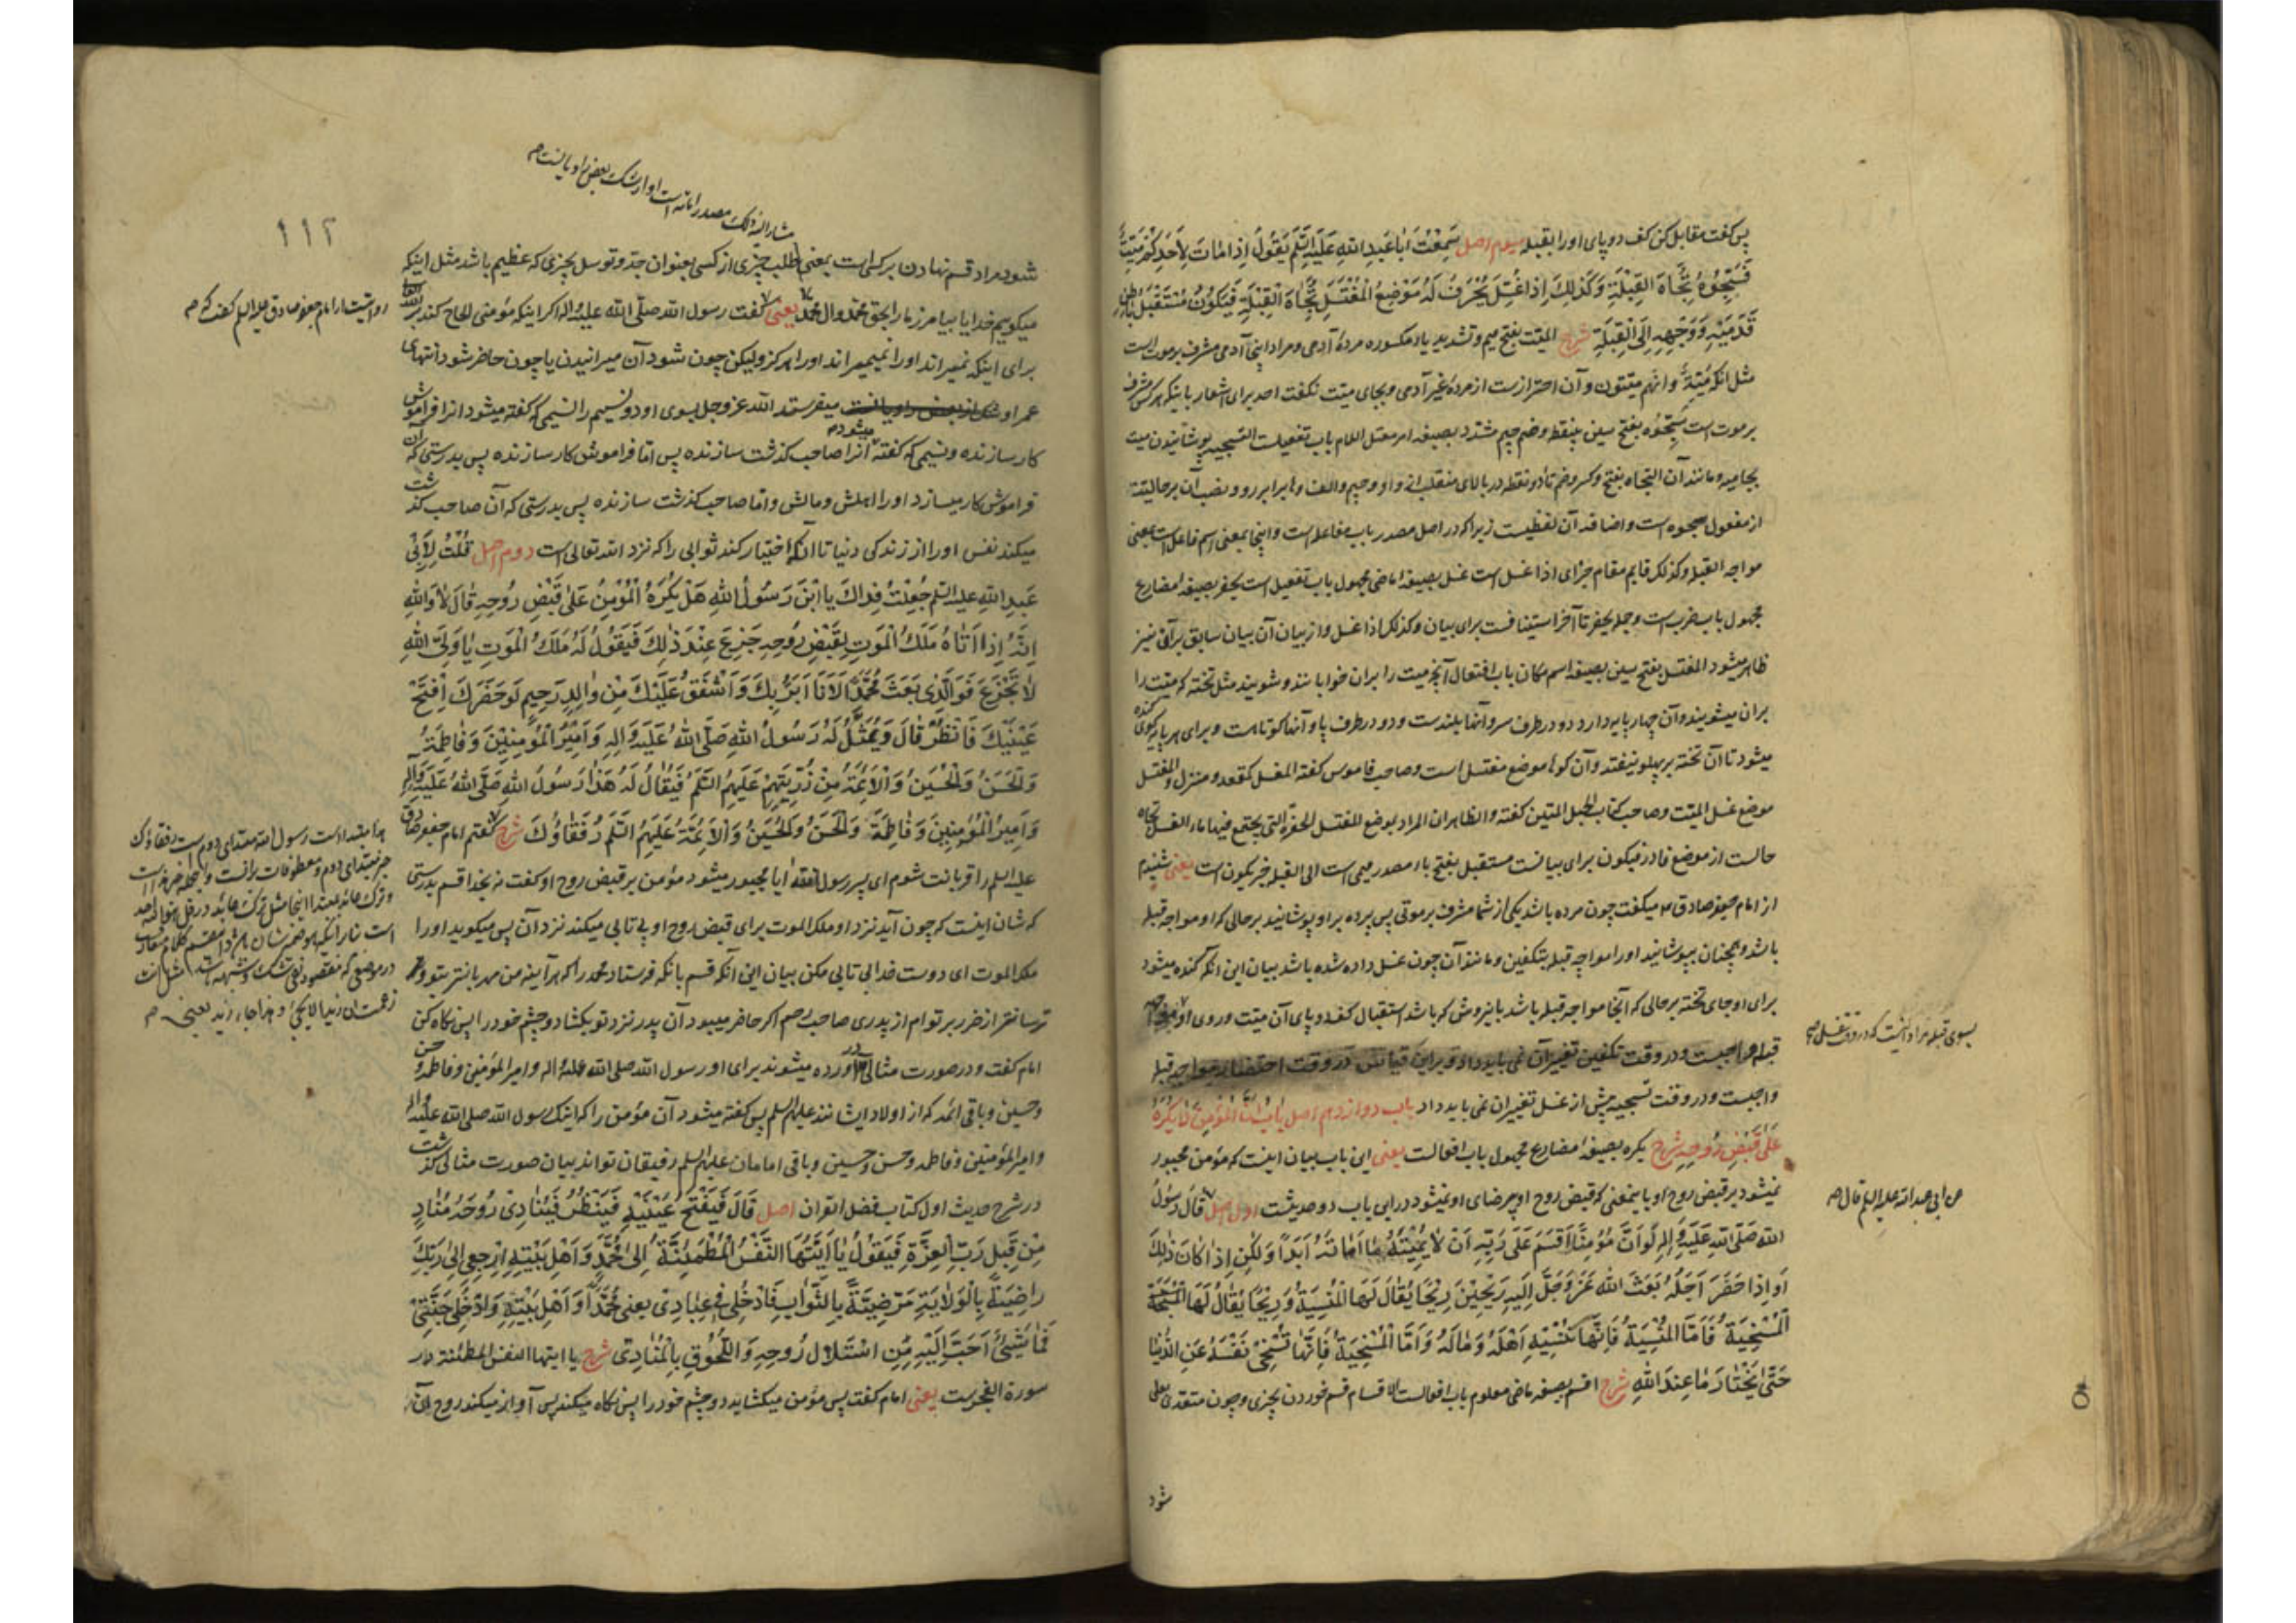 پس گفت مقابل کن کف دو پای او را بقبله سیوم اصل سَمِعْتُ اَبا عَبدِ اللهِ عَلَیْهِ السَّلَمُ یَقُولُ اِذا ماتَ لِاَحَدِکُمْ مَیِّتٌ
فَسَجُّوهُ تُجاهَ القِبْلَةِ وَکَذٰلِکَ اِذا غُسِّلَ یُحْفَرُ لَهُ مَوْضِعُ الْمُغْتَسَلِ تُجاهَ الْقِبْلَةِ فَیَکُونُ مُسْتَقْبَلَ باطِنِ
قَدَمَیْهِ وَوَجْهِهِ اِلَی الْقِبْلَةِ شرح المیّت بفتح میم و تشدید یاء مکسوره مردهٔ آدمی و مراد اینجا آدمی مشرف بر موت است
مثل انّک میّت و انّهم میّتون و آن احترازست از مردهٔ غیر آدمی و بجای میّت نگفت احد برای اشعار باینکه هر کس مشرف
بر موت است سَجُّوه بفتح سین بی‌نقطه و ضم جیم مشدد بصیغه امر معتل اللام باب تفعیلست التسجیه پوشانیدن میت
بجامه و مانند آن التجاه بفتح و کسر و ضم تاء دو نقطه در بالای منقلبه از واو و جیم و الف و ها برابر رو و نصب آن بر حالیتت
از مفعول سجوه است و اضافه آن لفظیست زیرا که در اصل مصدر باب مفاعله است و اینجا بمعنی اسم فاعل است یعنی
مواجه القبله و کذلک قایم مقام جزای اذا غسل است غسل بصیغه ماضی مجهول باب تفعیل است یحفر بصیغه مضارع
مجهول باب ضرب است و جمله یحفر تا آخر استینافست برای بیان و کذلک اذا غسل و از بیان آن بیان سابق بر آن نیز
ظاهر میشود المغتسل بفتح سین بصیغه اسم مکان باب افتعال آنچه میت را بران خوابانند و شویند مثل تخته که میت را
بران میشویند و آن چهار پایه دارد دو در طرف سر و آنها بلندست و دو در طرف پا و آنها کوتاهست و برای هر پایه کوی کنده
میشود تا آن تخته بر پهلو نیفتد و آن کوها موضع مغتسل است و صاحب قاموس گفته المغسل کمقعد و منزل و المغتسل
موضع غسل المیّت و صاحب کتاب الحبل المتین گفته و الظاهر ان المراد بموضع المغتسل الحفرة التی یجتمع فیها ماء الغسل تجاه
حالست از موضع فاء در فیکون برای بیانست مستقبل بفتح باء مصدر میمی است الی القبله خبر یکون است یعنی شنیدم
از امام جعفر صادق ع میگفت چون مرده باشد یکی از شما مشرف بر موتی پس پرده بر او پوشانید بر حالی که او مواجه قبله
باشد و همچنان بپوشانید او را مواجه قبله بتکفین و مانند آن چون غسل داده شده باشد بیان این آنکه کنده میشود
برای او جای تخته بر حالی که آنجا مواجه قبله باشد باین روش که باشد استقبال کف دو پای آن میّت و روی او مواجه
قبله واجبست و در وقت تکفین تغییر آن نمی باید داد و بر این قیاس در وقت احتضار مواجه قبله
بسوی قبله مراد اینست که در وقت غسل صح
واجبست و در وقت تسجیه پیش از غسل تغییر ان نمی باید داد باب دوازدهم اصل بابُ اَنَّ الْمُؤْمِنَ لا یُکْرَهُ
عَلٰی قَبْضِ رُوحِهِ شرح یکره بصیغه مضارع مجهول باب افعالست یعنی این باب بیان اینست که مؤمن مجبور
نمیشود بر قبض روح او باینمعنی که قبض روح او بی رضای او نمیشود در این باب دو حدیثست اول اصل قالَ رَسُولُ
عن ابی عبد الله علیه السلم قال صح
اللهِ صَلَّی اللهُ عَلَیْهِ وَاٰلِهِ لَوْ اَنَّ مُؤْمِنًا اَقْسَمَ عَلٰی رَبِّهِ اَنْ لا یُمیتَهُ ما اَماتَهُ اَبَداً وَلٰکِنْ اِذا کانَ ذٰلِکَ
اَوْ اِذا حَضَرَ اَجَلُهُ بَعَثَ اللهُ عَزَّ وَجَلَّ اِلَیْهِ ریحَیْنِ ریحًا یُقالُ لَهَا الْمُنْسِیَةُ وَریحًا یُقالُ لَهَا
الْمُسْخِیَةُ فَاَمَّا الْمُنْسِیَةُ فَاِنَّها تُنْسِیهِ اَهْلَهُ وَمالَهُ وَاَمَّا الْمُسْخِیَةُ فَاِنَّها تُسْخی نَفْسَهُ عَنِ الدُّنْیا
حَتّٰی یَخْتارَ ما عِنْدَ اللهِ شرح اقسم بصیغه ماضی معلوم باب افعالست الاقسام قسم خوردن بچیزی و چون متعدی بعلی
شود
۱۱۲
مشار الیه ذلک مصدر اماته است او از شک بعض راویانست صح
شود مراد قسم نهادن بر کسی است بمعنی طلب چیزی از کسی بعنوان جدّ و توسل بچیزی که عظیم باشد مثل اینکه
میگوییم خدایا بیامرز ما را بحق محمّد و ال محمّد یعنی گفت رسول الله صلّی الله علیه و اله اگر اینکه مؤمنی الحاح کند بر الله تعالی
روایتست از امام جعفر صادق علیه السلم گفت که صح
برای اینکه نمیراند او را نمیمیراند او را هرگز و لیکن چون شود آن میرانیدن یا چون حاضر شود انتهای
عمر او میفرستد الله عز و جل بسوی او دو نسیم را نسیمی که گفته میشود انرا فراموش
کار سازنده و نسیمی که گفته میشود صح انرا صاحب گذشت سازنده پس امّا فراموش کار سازنده پس بدرستی که آن
فراموش کار میسازد او را اهلش و مالش و اما صاحب گذشت سازنده پس بدرستی که آن صاحب گذشت
میکند نفس او را از زندگی دنیا تا آنکه اختیار کند ثوابی را که نزد الله تعالی است دوم اصل قُلْتُ لِاَبی
عَبدِ اللهِ علیه السّلم جُعِلْتُ فِداکَ یَا ابْنَ رَسُولِ اللهِ هَلْ یُکْرَهُ الْمُؤْمِنُ عَلٰی قَبْضِ رُوحِهِ قالَ لا وَاللهِ
اِنَّهُ اِذا اَتاهُ مَلَکُ الْمَوْتِ لِقَبْضِ رُوحِهِ جَزِعَ عِنْدَ ذٰلِکَ فَیَقُولُ لَهُ مَلَکُ الْمَوْتِ یا وَلِیَّ اللهِ
لا تَجْزَعْ فَوَالَّذی بَعَثَ مُحَمَّدًا لَاَنَا اَبَرُّ بِکَ وَاَشْفَقُ عَلَیْکَ مِنْ والِدٍ رَحیمٍ لَوْ حَضَرَکَ اِفْتَحْ
عَیْنَیْکَ فَانْظُرْ قالَ وَیُمَثَّلُ لَهُ رَسُولُ اللهِ صَلَّی اللهُ عَلَیْهِ وَاٰلِهِ وَاَمیرُ الْمُؤْمِنینَ وَفاطِمَةُ
وَالْحَسَنُ وَالْحُسَیْنُ وَالْاَئِمَّةُ مِنْ ذُرِّیَّتِهِمْ عَلَیْهِمُ السَّلَمُ فَیُقالُ لَهُ هٰذا رَسُولُ اللهِ صَلَّی اللهُ عَلَیْهِ وَاٰلِهِ
وَاَمیرُ الْمُؤْمِنینَ وَفاطِمَةُ وَالْحَسَنُ وَالْحُسَیْنُ وَالْاَئِمَّةُ عَلَیْهِمُ السَّلَمُ رُفَقاؤُکَ شرح گفتم امام جعفر صادق
علیه السلم را قربانت شوم ای پسر رسول الله ایا مجبور میشود مؤمن بر قبض روح او گفت نه بخدا قسم بدرستی
که شان اینست که چون آید نزد او ملک الموت برای قبض روح او بی تابی میکند نزد آن پس میگوید او را
ملک الموت ای دوست خدا بی تابی مکن بیان این آنکه قسم بانکه فرستاد محمد را که هر آینه من مهربانترم بتو و
ترسانتر از ضرر بر توام از پدری صاحب رحم اگر حاضر میبود آن پدر نزد تو بگشا دو چشم خود را پس نگاه کن
امام گفت و در صورت مثالی در آورده میشوند برای او رسول الله صلی الله علیه و اله و امیر المؤمنین و فاطمه و حسن
و حسین و باقی ائمه که از اولاد ایشانند علیهم السلم پس گفته میشود آن مؤمن را که اینک رسول الله صلی الله علیه و اله
و امیر المؤمنین و فاطمه و حسن و حسین و باقی امامان علیهم السلم رفیقان تواند بیان صورت مثالی گذشت
در شرح حدیث اول کتاب فضل القران اصل قالَ فَیَفْتَحُ عَیْنَیْهِ فَیَنْظُرُ فَیُنادی رُوحَهُ مُنادٍ
مِنْ قِبَلِ رَبِّ الْعِزَّةِ فَیَقُولُ یا اَیَّتُهَا النَّفْسُ الْمُطْمَئِنَّةُ اِلٰی مُحَمَّدٍ وَاَهْلِ بَیْتِهِ ارْجِعی اِلٰی رَبِّکِ
راضِیَةً بِالْوَلایَةِ مَرْضِیَّةً بِالثَّوابِ فَادْخُلی فی عِبادی یعنی مُحَمَّدًا وَاَهْلَ بَیْتِهِ وَادْخُلی جَنَّتی
فَما شَیْءٌ اَحَبَّ اِلَیْهِ مِنِ اسْتِلالِ رُوحِهِ وَاللُّحُوقِ بِالْمُنادی شرح یا ایتها النفس المطمئنة در
سورة الفجرست یعنی امام گفت پس مؤمن میگشاید دو چشم خود را پس نگاه میکند پس آواز میکند روح آن